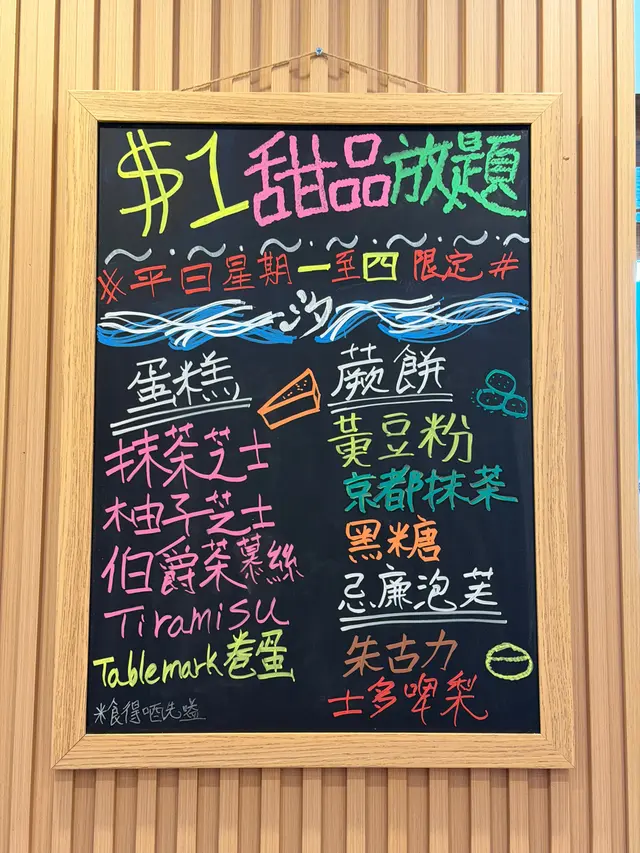 $1甜品放題
※平日星期一至四限定#
汐
蛋糕
抹茶芝士
柚子芝士
伯爵茶慕絲
Tiramisu
Tablemark卷蛋
※食得哂先嗌
蕨餅
黃豆粉
京都抹茶
黑糖
忌廉泡芙
朱古力
士多啤梨